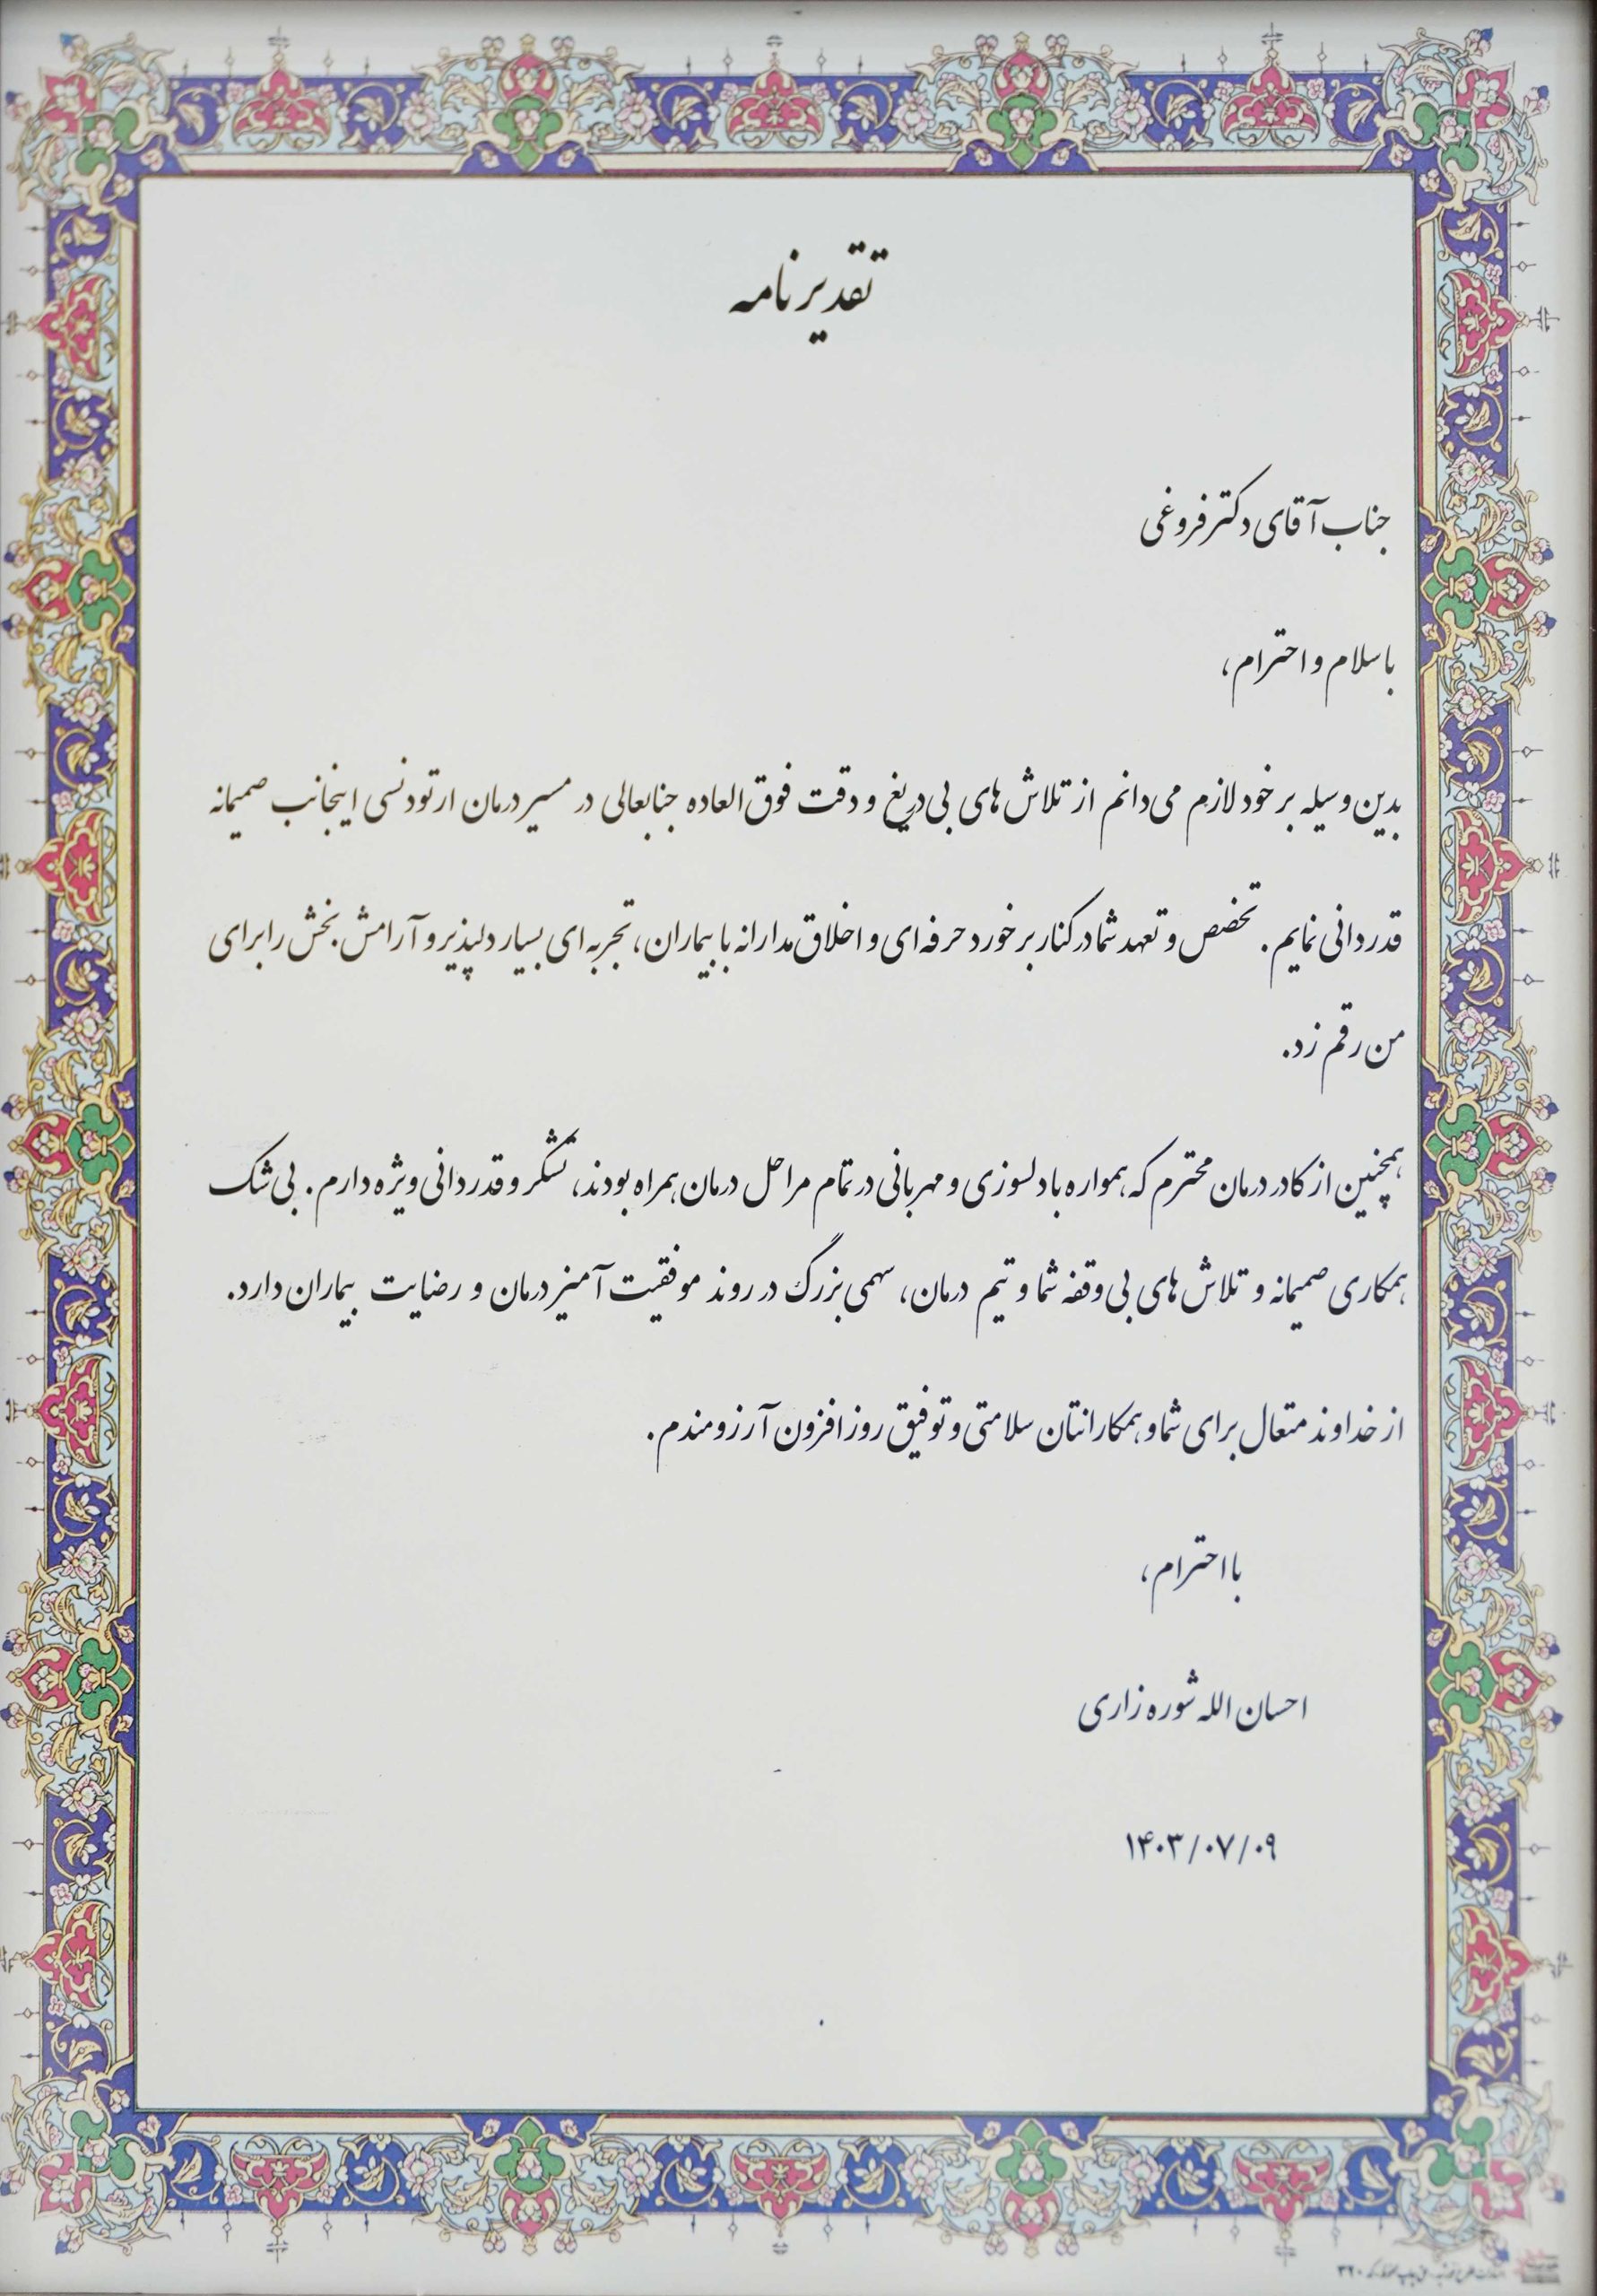 تقدیرنامه
جناب آقای دکتر فروغی
با سلام و احترام،
بدین وسیله بر خود لازم می‌دانم از تلاش‌های بی‌دریغ و دقت فوق‌العاده جنابعالی در مسیر درمان ارتودنسی اینجانب صمیمانه
قدردانی نمایم. تخصص و تعهد شما در کنار برخورد حرفه‌ای و اخلاق‌مدارانه با بیماران، تجربه‌ای بسیار دلپذیر و آرامش‌بخش را برای
من رقم زد.
همچنین از کادر درمان محترم که همواره با دلسوزی و مهربانی در تمام مراحل درمان همراه بودند، تشکر و قدردانی ویژه دارم. بی‌شک
همکاری صمیمانه و تلاش‌های بی‌وقفه شما و تیم درمان، سهمی بزرگ در روند موفقیت‌آمیز درمان و رضایت بیماران دارد.
از خداوند متعال برای شما و همکارانتان سلامتی و توفیق روزافزون آرزومندم.
با احترام،
احسان الله شوره زاری
۱۴۰۳/۰۷/۰۹